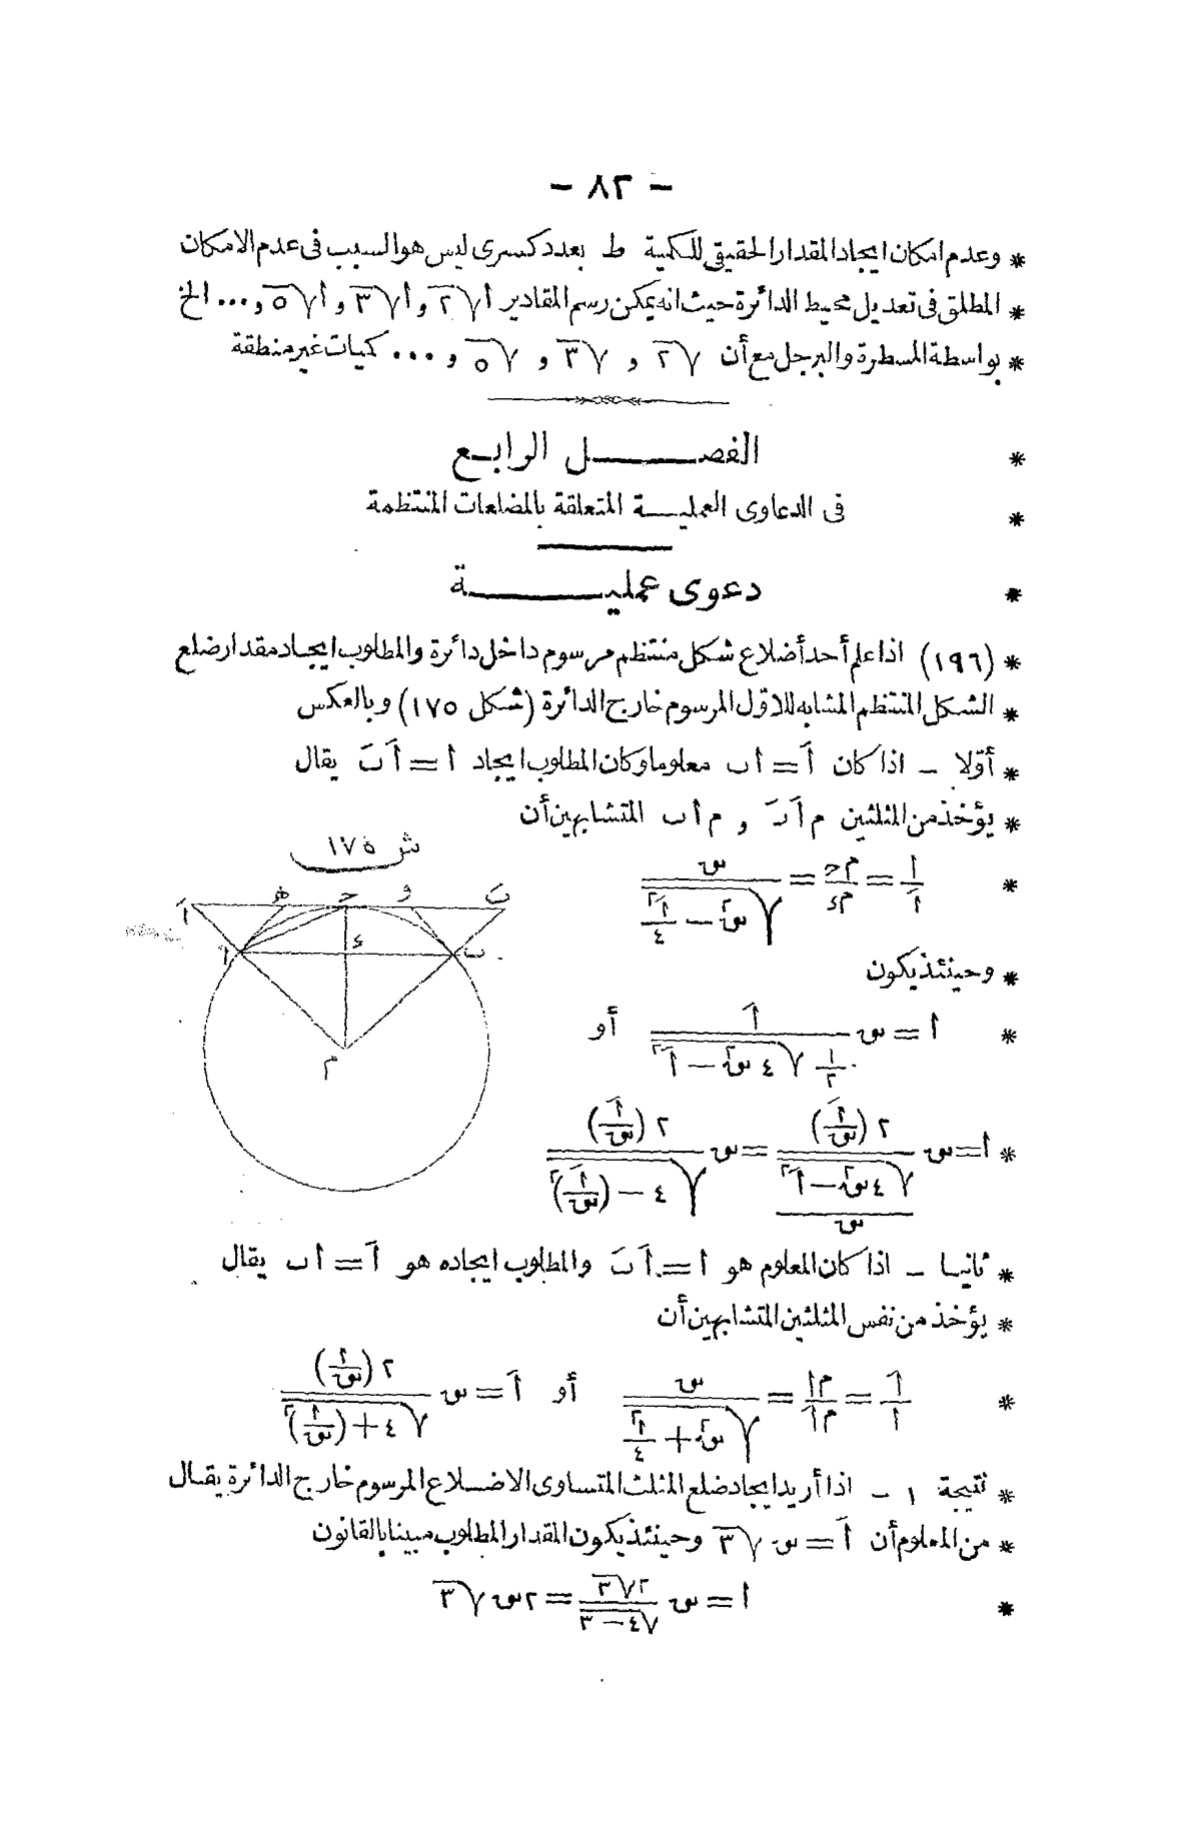 - ٨٢ -
* وعدم امكان ايجاد المقدار الحقيقى للكمية ط بعدد كسرى ليس هو السبب فى عدم الامكان
* المطلق فى تعديل محيط الدائرة حيث انه يمكن رسم المقادير أ√٢ و أ√٣ و أ√٥ و ... الخ
* بواسطة المسطرة والبرجل مع أن √٢ و √٣ و √٥ و ... كميات غير منطقة
* الفصل الرابع
* فى الدعاوى العملية المتعلقة بالمضلعات المنتظمة
* دعوى عملية
* (١٩٦) اذا علم أحد أضلاع شكل منتظم مرسوم داخل دائرة والمطلوب ايجاد مقدار ضلع
* الشكل المنتظم المشابه للاوّل المرسوم خارج الدائرة (شكل ١٧٥) وبالعكس
* أوّلا - اذا كان أَ = اب معلوما وكان المطلوب ايجاد ا = اَبَ يقال
* يؤخذ من المثلثين م اَبَ و م اب المتشابهين أن
ش ١٧٥
اَ ه ح و بَ
ا ء ب
م
* ا/اَ = م ح/م ء = س/√(س٢ - اَ٢/٤)
* وحينئذ يكون
* ا = س اَ/(١/٢ √(٤ س٢ - اَ٢)) أو
* ا = س ٢(اَ/س)/(√(٤ س٢ - اَ٢)/س) = س ٢(اَ/س)/√(٤ - (اَ/س)٢)
* ثانيا - اذا كان المعلوم هو ا = اَبَ والمطلوب ايجاده هو اَ = اب يقال
* يؤخذ من نفس المثلثين المتشابهين أن
* اَ/ا = م ا/م اَ = س/√(س٢ + ا٢/٤) أو اَ = س ٢(ا/س)/√(٤ + (ا/س)٢)
* نتيجة ١ - اذا أريد ايجاد ضلع المثلث المتساوى الاضلاع المرسوم خارج الدائرة يقال
* من المعلوم أن اَ = س √٣ وحينئذ يكون المقدار المطلوب مبينا بالقانون
* ا = س ٢√٣/√(٤ - ٣) = ٢ س √٣